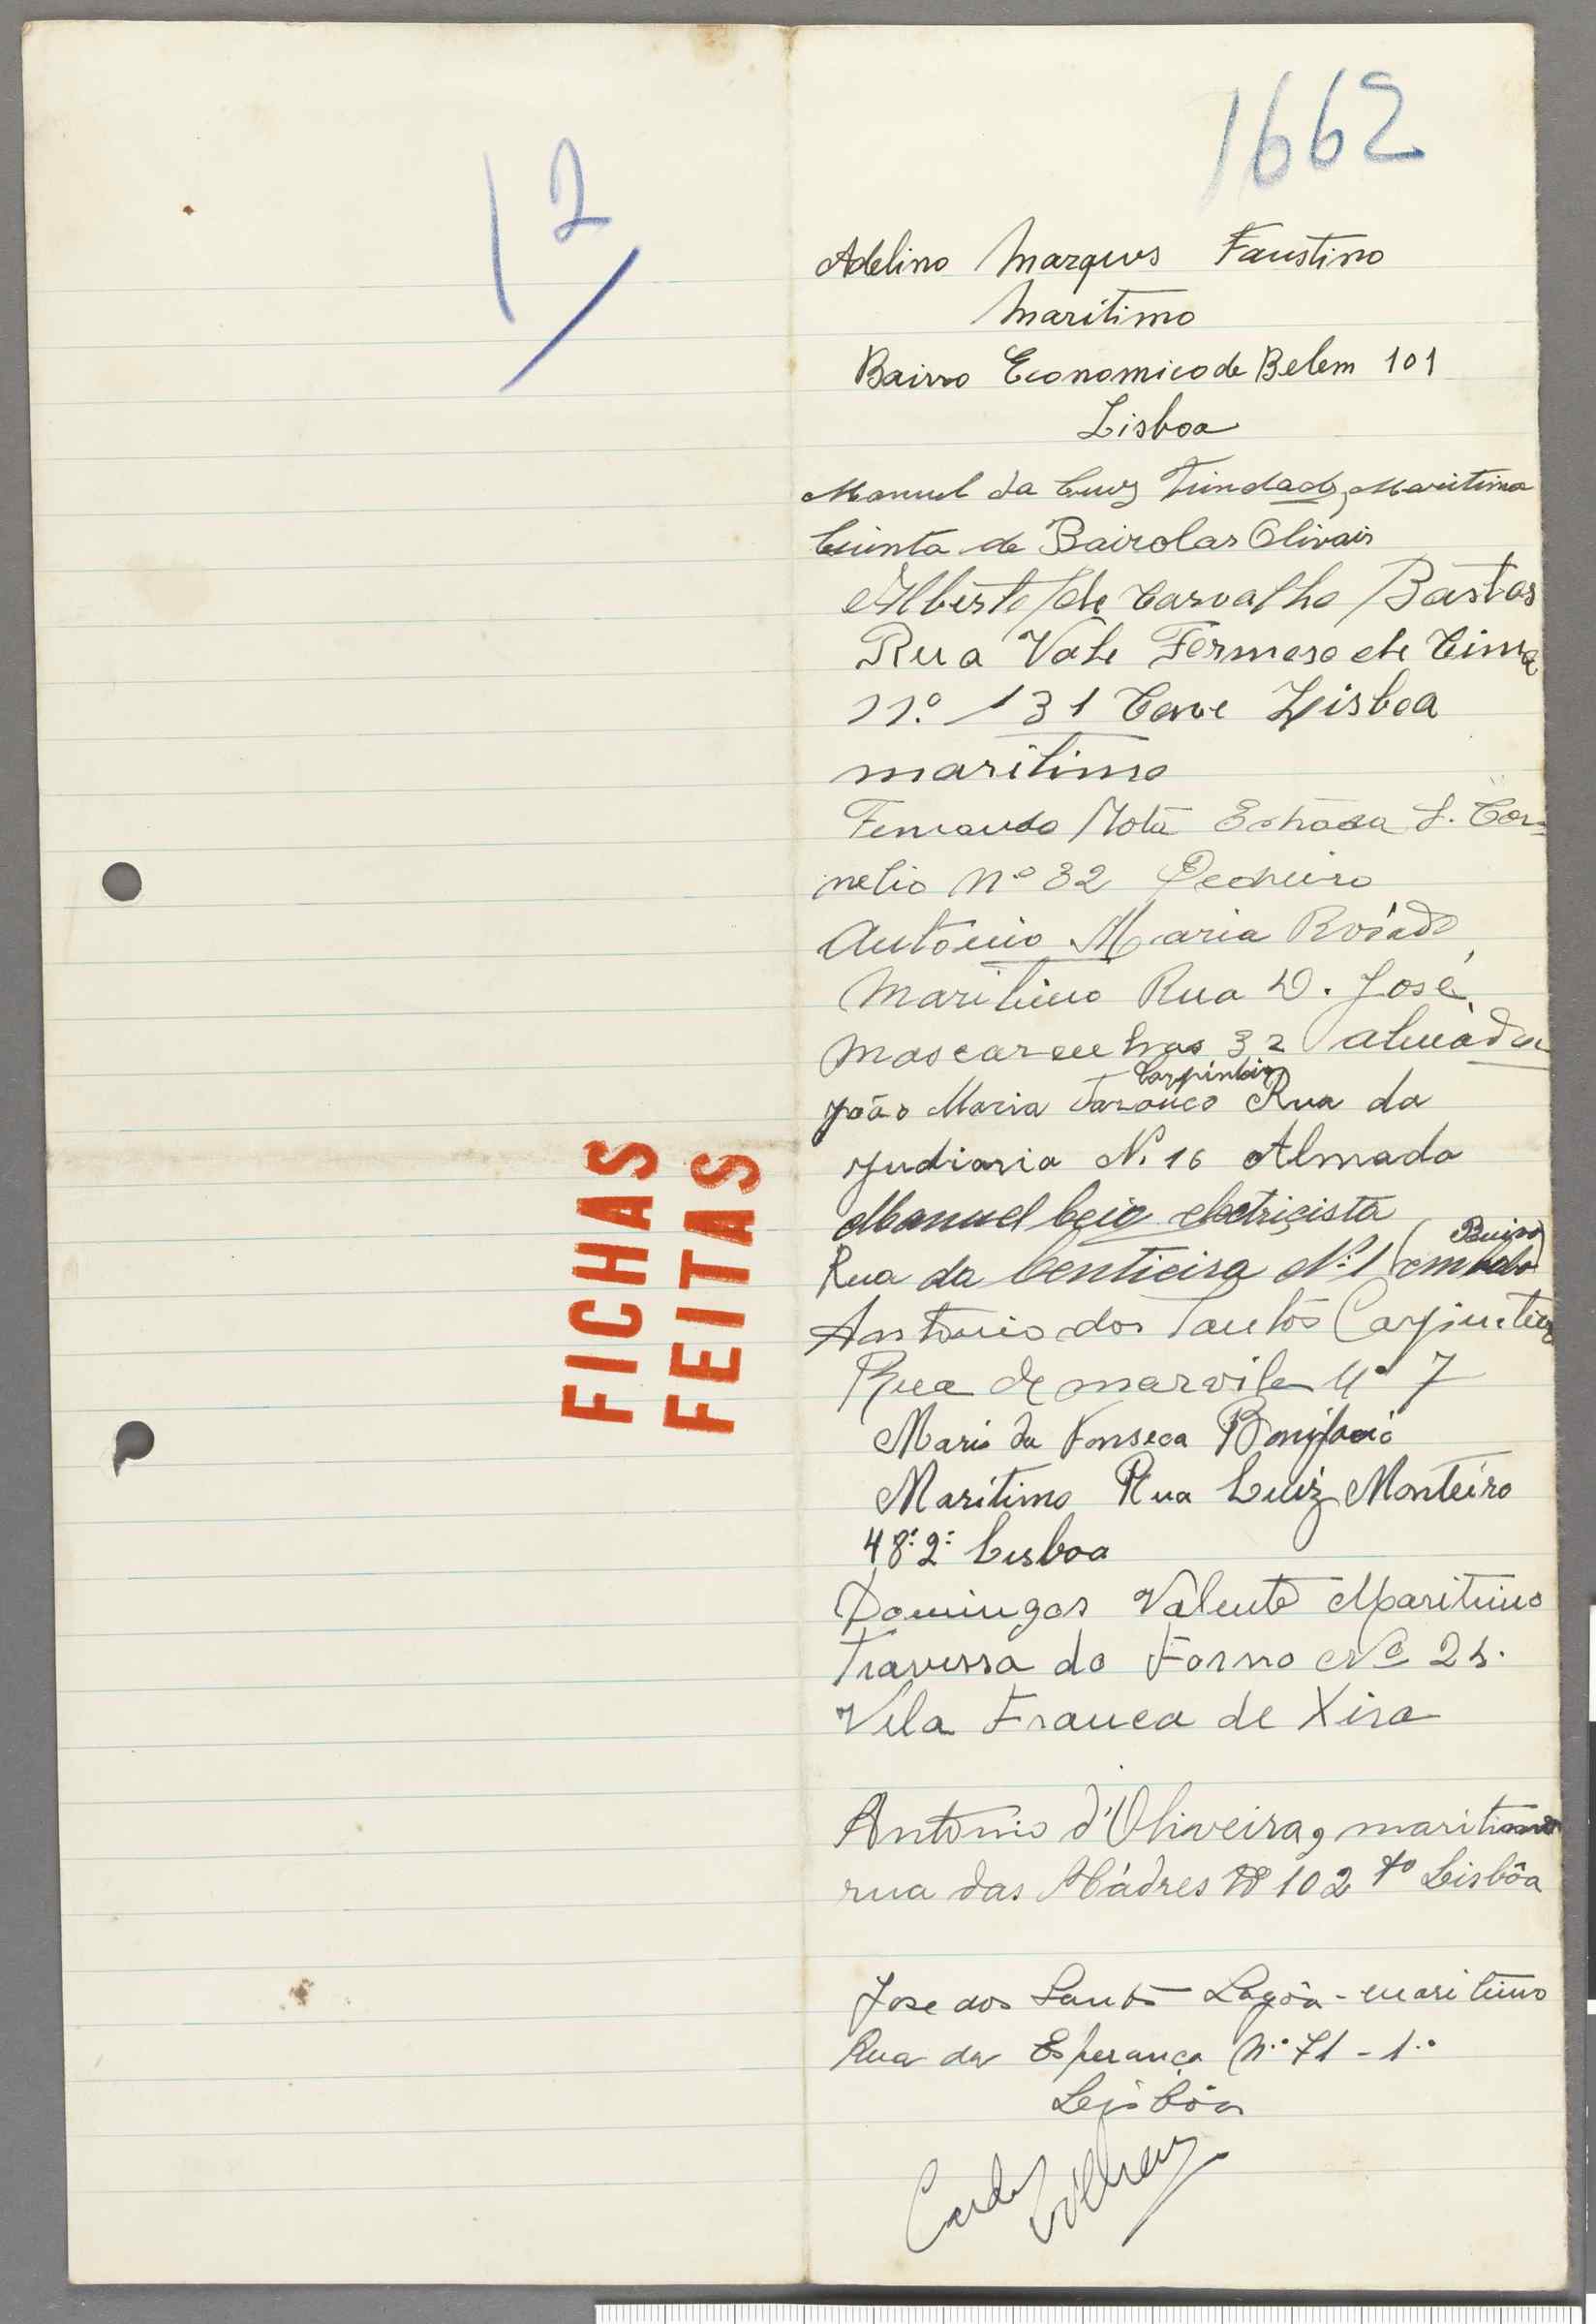 12
1662
Adelino Marques Faustino
Maritimo
Bairro Economico de Belem 101
Lisboa
Manuel da Cruz Trindade, Maritimo
Quinta de Bairolas Olivais
Alberto de Carvalho Bastos
Rua Vale Formoso de Cima
n.º 131 Cave Lisboa
maritimo
Fernando Mota Estrada S. Cor-
nelio Nº 32 Pedreiro
Antonio Maria Rosado
Maritimo Rua D. José
Mascarenhas 32 Almada
Carpinteiro
João Maria Tarouco Rua da
Judiaria N. 16 Almada
Manuel electricista
Rua da Centieira Nº 1
Antonio dos Santos Carpinteiro
Rua de marvila nº 7
Mario da Fonseca Bonifacio
Maritimo Rua Luiz Monteiro
48: 2: Lisboa
Domingos Valente Maritimo
Travessa do Forno Nº 24.
Vila Franca de Xira
Antonio d'Oliveira, maritimo
rua das Mádres Nº 102 Lisbôa
Jose dos Santos Lagôa - maritimo
Rua da Esperança N.º 71 - 1.º
Lisbôa
FICHAS
FEITAS